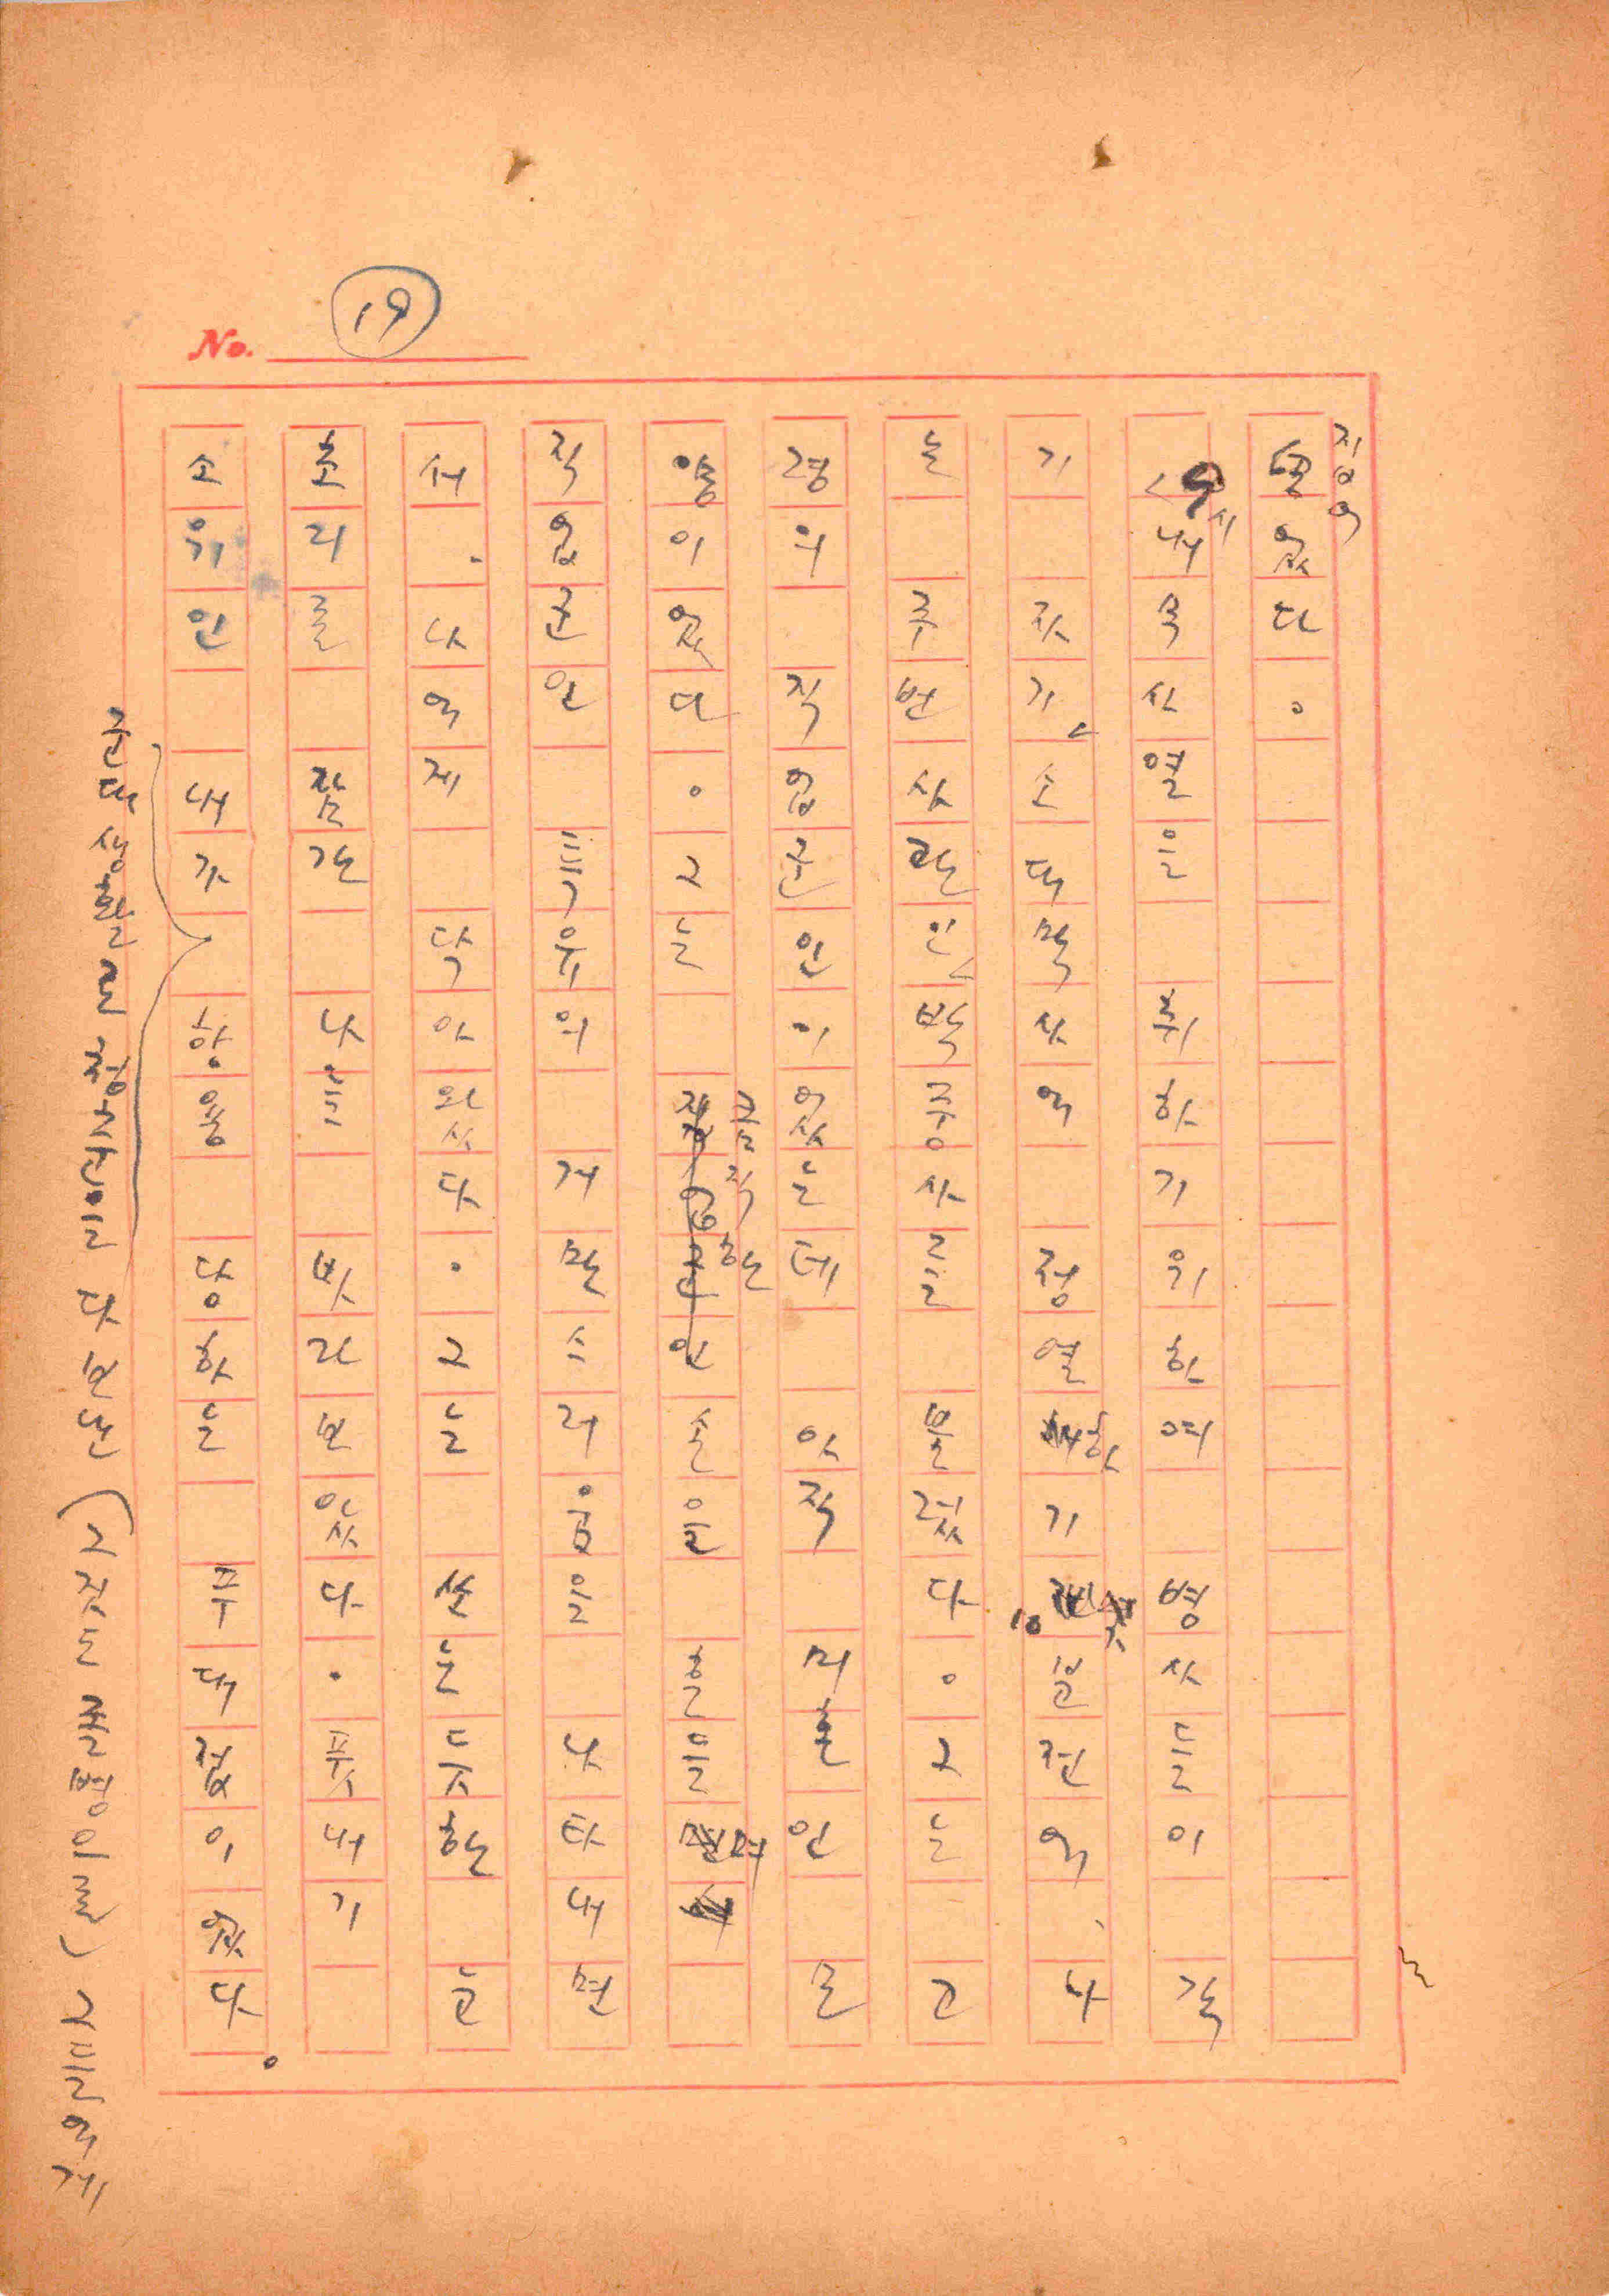 No. 19
집어
물었다.
9시 내무사열을 취하기 위하여 병사들이 각
기 자기 소대막사에 정열하기 10분전에、나
는 주번사관인 박중사를 불렀다. 그는 고
령의 직업군인이었는데 아직 미혼인 모
양이었다. 그는 굼직한 손을 흔들며
직업군인 특유의 거만스러움을 나타내면
서. 나에게 닥아왔다. 그는 쏘는듯한 눈
초리를 잠간 나를 바라보았다. 풋내기
소위인 내가 항용 당하는 푸대접이었다.
군대생활로 청춘시절을 다 보낸 (그것도 졸병으로) 그들에게